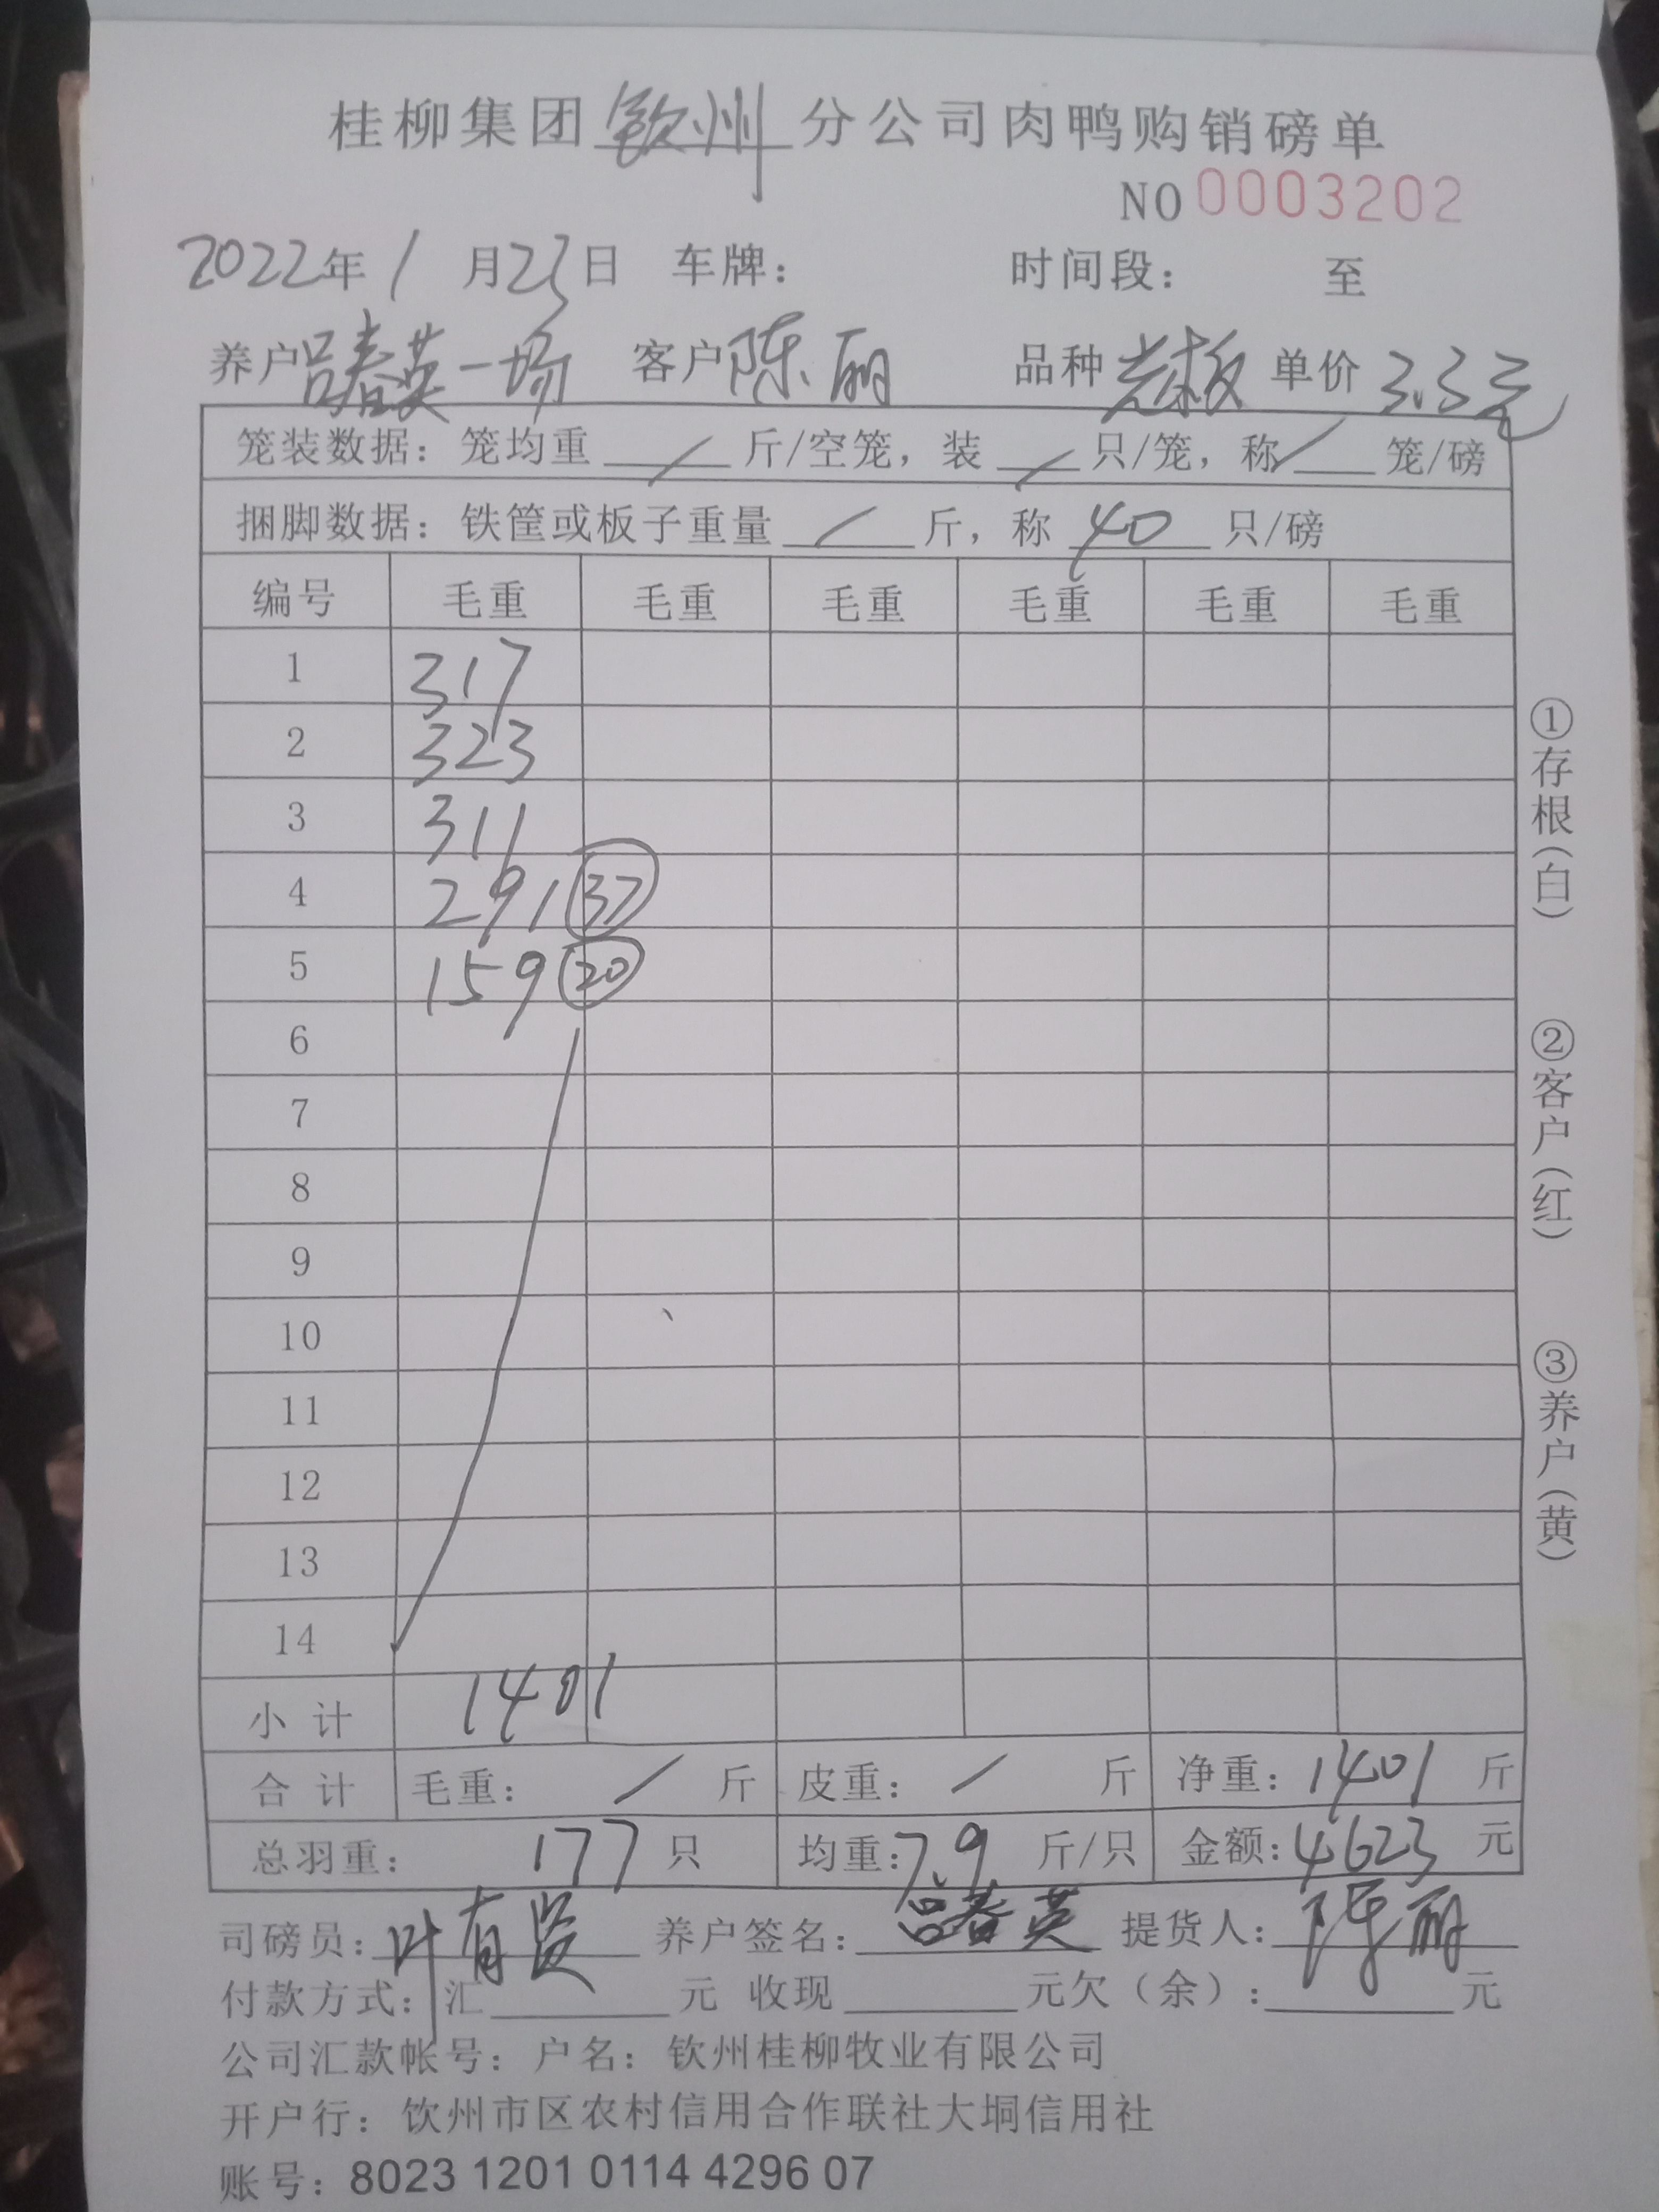 桂柳集团钦州分公司肉鸭购销磅单
NO 0003202
2022年1月23日 车牌： 时间段： 至
养户吕春英一场 客户陈丽 品种 板 单价3.3元
笼装数据：笼均重 / 斤/空笼，装 / 只/笼，称 / 笼/磅
捆脚数据：铁筐或板子重量 / 斤，称 40 只/磅
编号 毛重 毛重 毛重 毛重 毛重 毛重
1 317
2 323
3 311
4 291 37
5 159 20
6
7
8
9
10
11
12
13
14
小计 1401
合计 毛重： / 斤 皮重： / 斤 净重：1401 斤
总羽重： 177 只 均重：7.9 斤/只 金额：4623 元
司磅员：叶有 养户签名：吕春英 提货人：陈丽
付款方式：汇 元 收现 元欠（余）： 元
公司汇款帐号：户名：钦州桂柳牧业有限公司
开户行：钦州市区农村信用合作联社大垌信用社
账号：8023 1201 0114 4296 07
①存根（白）
②客户（红）
③养户（黄）